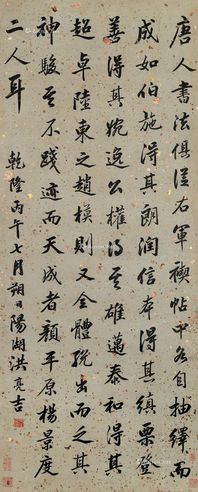 唐人書法俱從右軍禊帖中各自抽繹而
成如伯施得其朗潤信本得其縝栗登
善得其婉逸公權得其雄邁泰和得其
超卓陸柬之趙模則又全體脫出而乏其
神駿至不踐迹而天成者顏平原楊景度
二人耳
乾隆丙午七月朔日陽湖洪亮吉